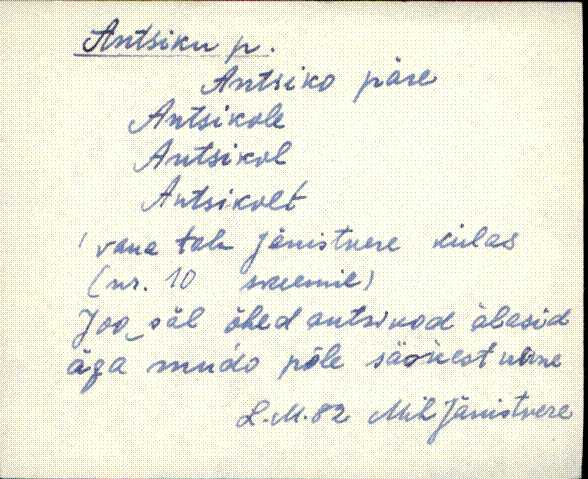 Antsiku p.
Antsiko päre
Antsikole
Antsikol
Antsikolt
vana talu Jänistvere külas
(nr. 10 skeemil)
Joo, säl õhed antsikod ålasid
äga mudo põle säönest
L.M. 82 Mih Jänistvere